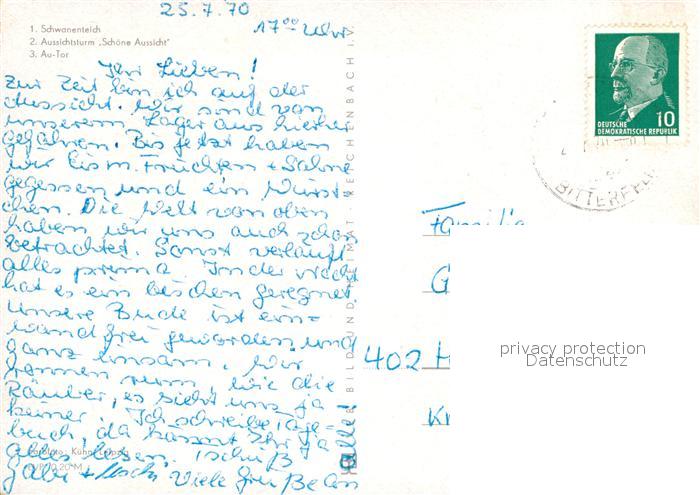 25.7.70
17⁰⁰ Uhr
1. Schwanenteich
2. Aussichtsturm „Schöne Aussicht"
3. Au-Tor
Ihr Lieben!
Zur Zeit bin ich auf der
Aussicht. Wir sind von
unserem Lager aus hierher
gefahren. Bis jetzt haben
wir Eis m. Früchten + Sahne
gegessen und ein Würst-
chen. Die Welt von oben
haben wir uns auch schon
betrachtet. Sonst verläuft
alles prima. In der Nacht
hat es ein bischen geregnet.
Unsere Bude ist ein-
wandfrei geworden und
ganz einsam. Wir
kommen rum, wie die
Räuber, es sieht uns ja
keiner. Ich schreibe Tage-
buch, da kannst Ihr ja
alles lesen. Tschüß
Gabi + Uschi Viele Grüße an
alle!
BILD UND HEIMAT REICHENBACH I.V.
EVP 0,20 M
DEUTSCHE
DEMOKRATISCHE REPUBLIK
10
BITTERFELD
Familie
G
402 H
K
privacy protection
Datenschutz